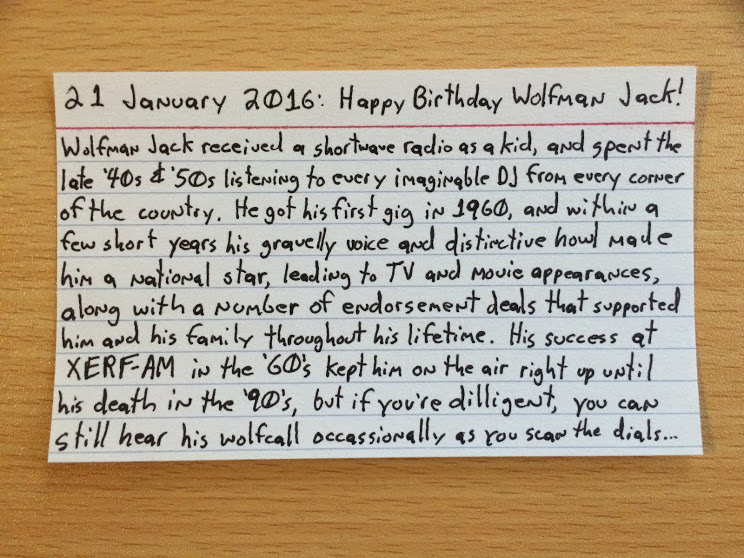 21 January 2016: Happy Birthday Wolfman Jack!
Wolfman Jack received a shortwave radio as a kid, and spent the
late '40s & '50s listening to every imaginable DJ from every corner
of the country. He got his first gig in 1960, and within a
few short years his gravelly voice and distinctive howl made
him a national star, leading to TV and movie appearances,
along with a number of endorsement deals that supported
him and his family throughout his lifetime. His success at
XERF-AM in the '60's kept him on the air right up until
his death in the '90's, but if you're dilligent, you can
still hear his wolfcall occassionally as you scan the dials...